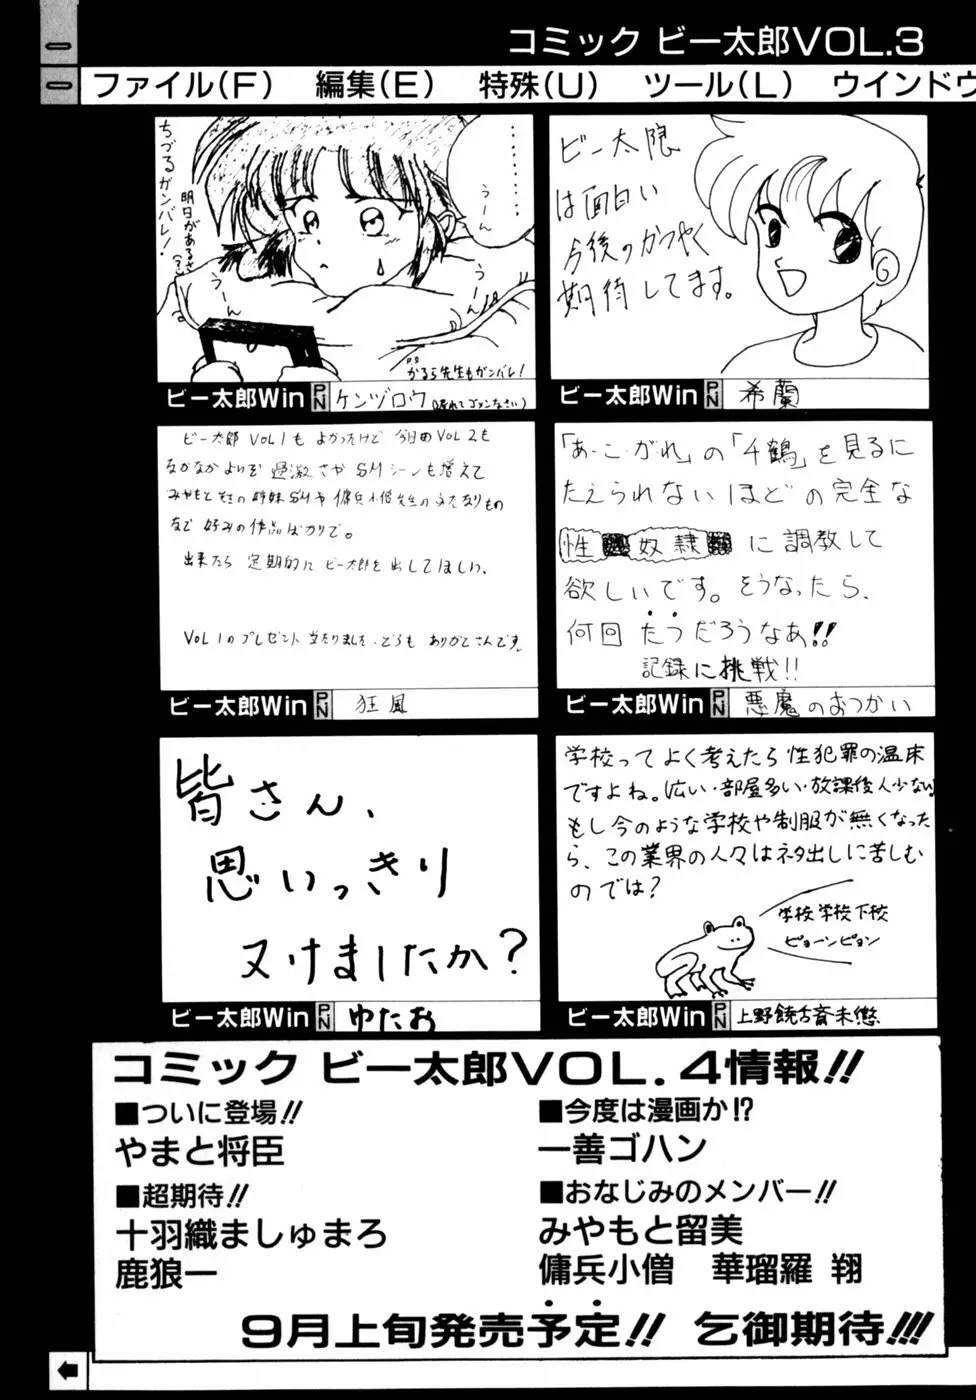 コミック ビー太郎VOL.3
ファイル(F) 編集(E) 特殊(U) ツール(L) ウインドウ
ちづるガンバレ!
明日があるさ
うーん
うーん
P.S
かるら先生もガンバレ!
ビー太郎Win PN ケンヅロウ(遅れてゴメンなさい)
ビー太限
は面白い
今後のかつやく
期待してます。
ビー太郎Win PN 希蘭
ビー太郎 VOL1も よかったけど 今回のVOL2も
なかなかよいぞ 過激さや SMシーンも増えて
みやもと先生の姉妹SMや傭兵小僧先生のふたなりもの
など 好みの作品ばかりで。
出来たら 定期的に ビー太郎を出してほしい。
VOL1のプレゼント 当たりました。どうも ありがとさんです。
ビー太郎Win PN 狂風
「あ・こ・がれ」の「千鶴」を見るに
たえられないほどの完全な
性奴隷に調教して
欲しいです。そうなったら、
何回たつだろうなあ!!
記録に挑戦!!
ビー太郎Win PN 悪魔のおつかい
皆さん、
思いっきり
ヌけましたか?
ビー太郎Win PN ゆたお
学校って よく考えたら 性犯罪の温床
ですよね。広い・部屋多い・放課後人少ない
もし今のような学校や制服が無くなった
ら、この業界の人々はネタ出しに苦しむ
のでは?
学校学校下校
ピョーンピョン
ビー太郎Win PN 上野饒舌斎未悠
コミック ビー太郎VOL.4情報!!
■ついに登場!!
やまと将臣
■超期待!!
十羽織ましゅまろ
鹿狼一
■今度は漫画か!?
一善ゴハン
■おなじみのメンバー!!
みやもと留美
傭兵小僧 華瑠羅 翔
9月上旬発売予定!! 乞御期待!!!